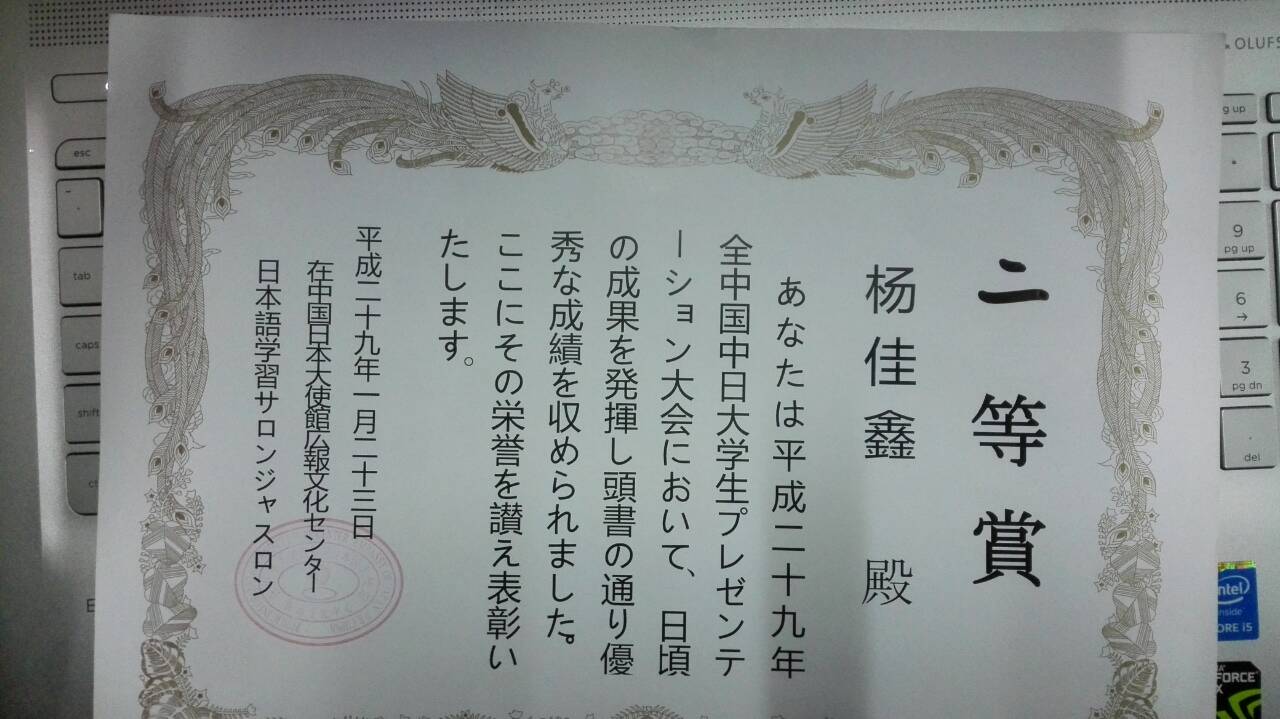 二等賞
杨佳鑫 殿
あなたは平成二十九年
全中国中日大学生プレゼンテ
ーション大会において、日頃
の成果を発揮し頭書の通り優
秀な成績を収められました。
ここにその栄誉を讃え表彰い
たします。
平成二十九年一月二十三日
在中国日本大使館広報文化センター
日本語学習サロンジャスロン
esc
tab
caps
shift
OLUFS
g up
9
pg up
6
→
3
pg dn
.
del
intel
inside
ORE i5
FORCE
X